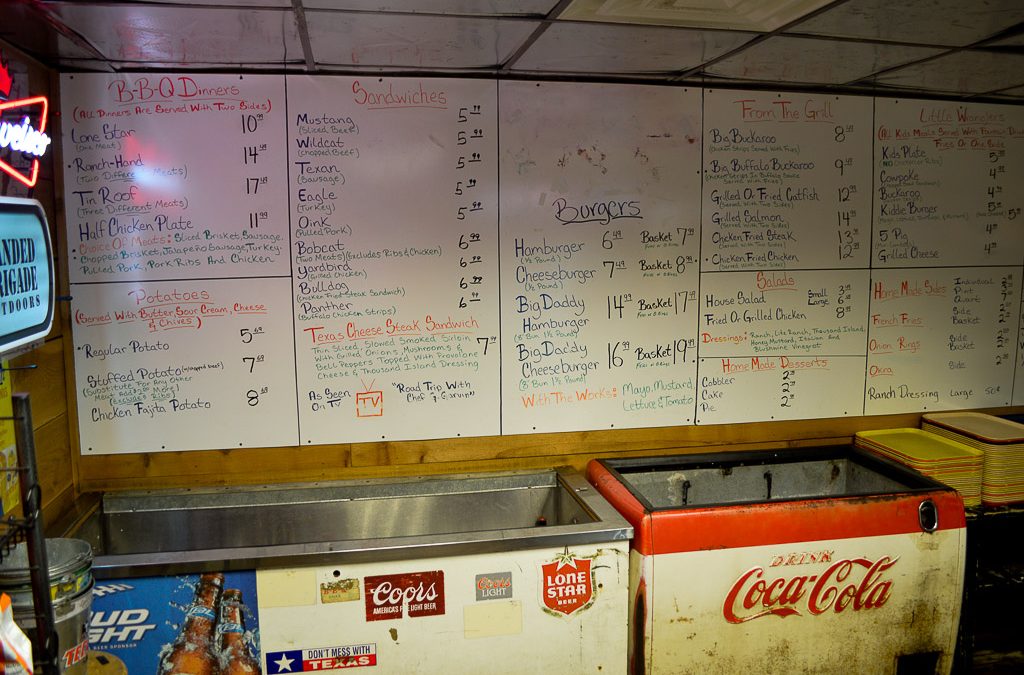 B-B-Q Dinners
(All Dinners Are Served With Two Sides)
Lone Star 10.99
(One Meat)
Ranch-Hand 14.49
(Two Different Meats)
Tin Roof 17.49
(Three Different Meats)
Half Chicken Plate 11.99
Choice Of Meats: Sliced Brisket, Sausage,
Chopped Brisket, Jalapeno Sausage, Turkey,
Pulled Pork, Pork Ribs And Chicken.
Potatoes
(Served With Butter, Sour Cream, Cheese
& Chives)
Regular Potato 5.69
Stuffed Potato (w/Chopped Beef) 7.69
(Substitute For Any Other
Meat Add $1.00 More)
(Excludes Ribs)
Chicken Fajita Potato 8.69
Sandwiches
Mustang 5.99
(Sliced Beef)
Wildcat 5.99
(Chopped Beef)
Texan 5.99
(Sausage)
Eagle 5.99
(Turkey)
Oink 5.99
(Pulled Pork)
Bobcat 6.99
(Two Meats) (Excludes Ribs & Chicken)
Yardbird 6.99
(Grilled Chicken)
Bulldog 6.99
(Chicken Fried Steak Sandwich)
Panther 6.99
(Buffalo Chicken Strips)
Texas Cheese Steak Sandwich 7.99
Thin Sliced, Slowed Smoked, Sirloin
With Grilled Onions, Mushrooms &
Bell Peppers Topped With Provolone
Cheese & Thousand Island Dressing
As Seen
On TV
TV
"Road Trip With
Burgers
Hamburger 6.49 Basket 7.99
(½ Pound)
Cheeseburger 7.49 Basket 8.99
(½ Pound)
Big Daddy 14.99 Basket 17.49
Hamburger
(8" Bun 1½ Pound)
Big Daddy 16.99 Basket 19.99
Cheeseburger
(8" Bun 1½ Pound)
With The Works: Mayo, Mustard,
Lettuce & Tomato
From The Grill
Big Buckaroo 8.49
(Chicken Strips Served With Fries)
Big Buffalo Buckaroo 9.49
(Chicken Strips In Buffalo Sauce
Served With Fries)
Grilled Or Fried Catfish 12.99
(Served With Two Sides)
Grilled Salmon 14.99
(Served With Two Sides)
Chicken Fried Steak
(Served With Two Sides)
Chicken Fried Chicken
(Served With Two Sides)
Salads
House Salad Small
Large
Fried Or Grilled Chicken
Dressings: Ranch, Lite Ranch, Thousand Island,
Honey Mustard, Italian And
Home Made Desserts
Cobbler
Cake
Pie
Little Wranglers
(All Kids Meals Served With Fountain Drink
Fries Or One Side
Kids Plate
Cowpoke
(Chopped Beef Sandwich)
Buckaroo
Kiddie Burger
5 Pig
Grilled Cheese
Home Made Sides Individual
Pint
Quart
French Fries Side
Basket
Onion Rings Side
Basket
Okra Side
Ranch Dressing Large 50¢
NDED
RIGADE
TDOORS
UD
GHT
BEER SPONSOR
Coors
AMERICA'S FINE LIGHT BEER
Coors
LIGHT
LONE
STAR
BEER
DON'T MESS WITH
TEXAS
DRINK
Coca-Cola